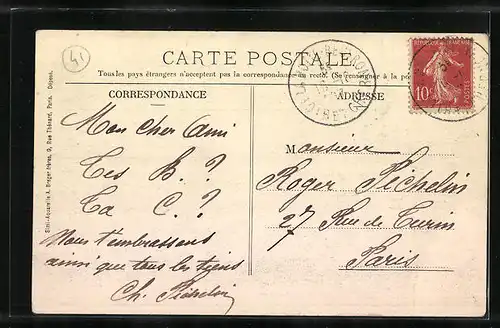 41
CARTE POSTALE
Tous les pays étrangers n'acceptent pas la correspondance au recto. (Se renseigner à la poste)
CORRESPONDANCE
ADRESSE
RÉPUBLIQUE FRANÇAISE
10c
POSTES
Mon cher Ami
Tes B. ?
Ta C. ?
Nous t'embrassons
ainsi que tous les tiens
Ch. Péchelin
Monsieur
Roger Péchelin
27 Rue de Turin
Paris
Simi-Aquarelle A. Breger frères, 9, Rue Thénard, Paris. Déposé.